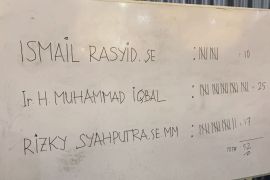 ISMAIL RASYID. SE : = 10
Ir H. MUHAMMAD IQBAL : = 25
RIZKY SYAHPUTRA. SE MM : = 17
TOTAL 52